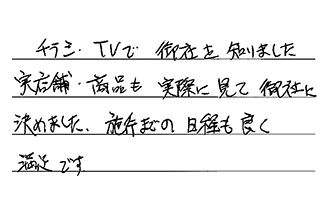 チラシ・TVで 御社を 知りました
実店舗・商品も 実際に見て 御社に
決めました、施行までの 日程も良く
満足です